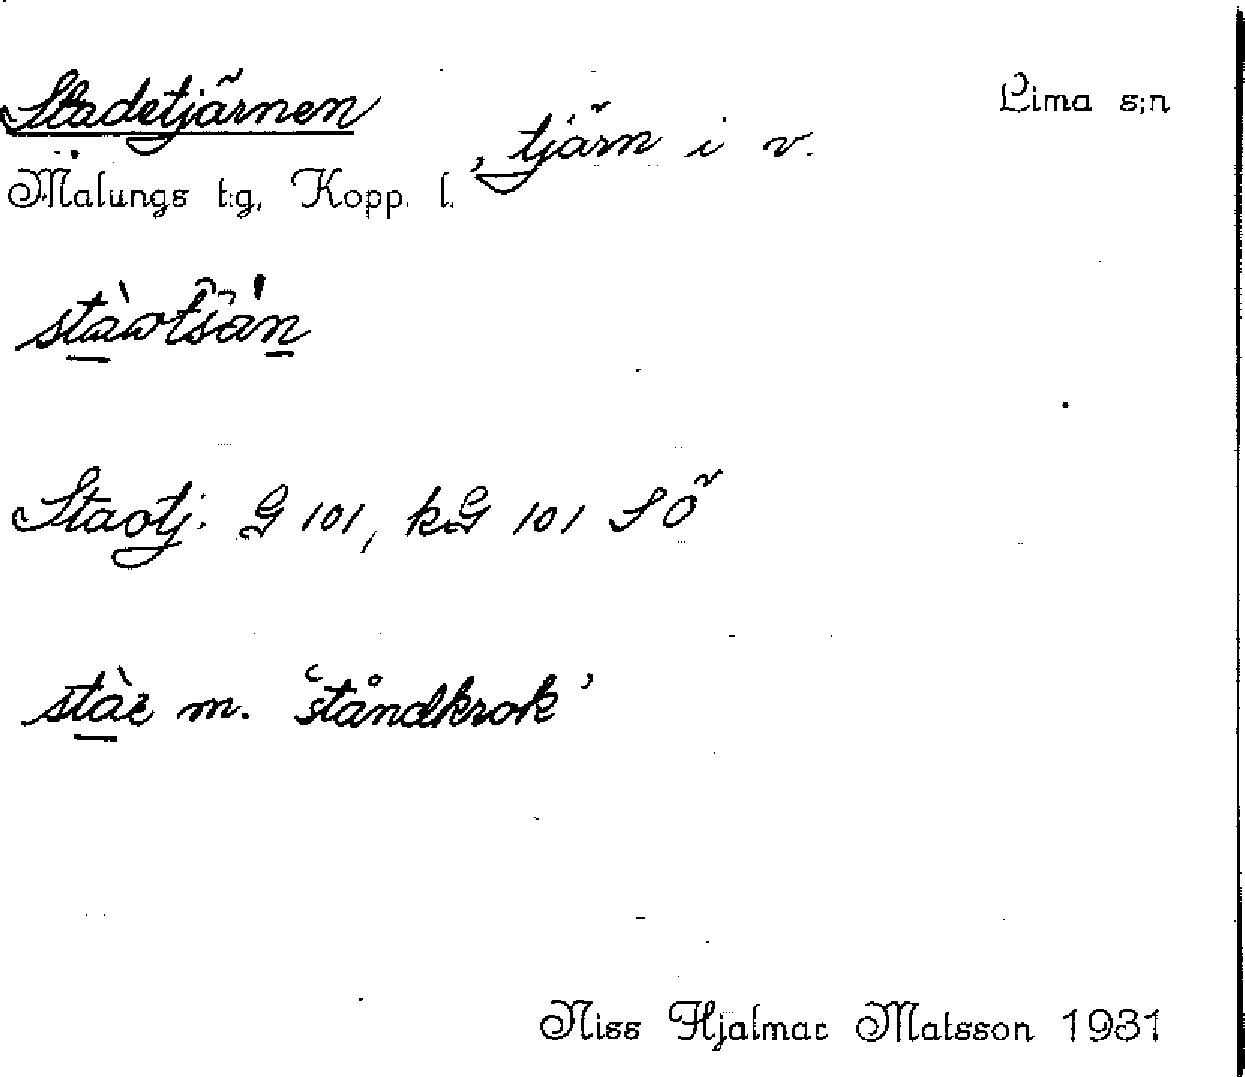 Stadetjärnen Lima s;n
, tjärn i v.
Malungs t:g, Kopp. l.
Staotj. G 101, kG 101 SÖ
m. 'ståndkrok'
Niss Hjalmar Matsson 1931